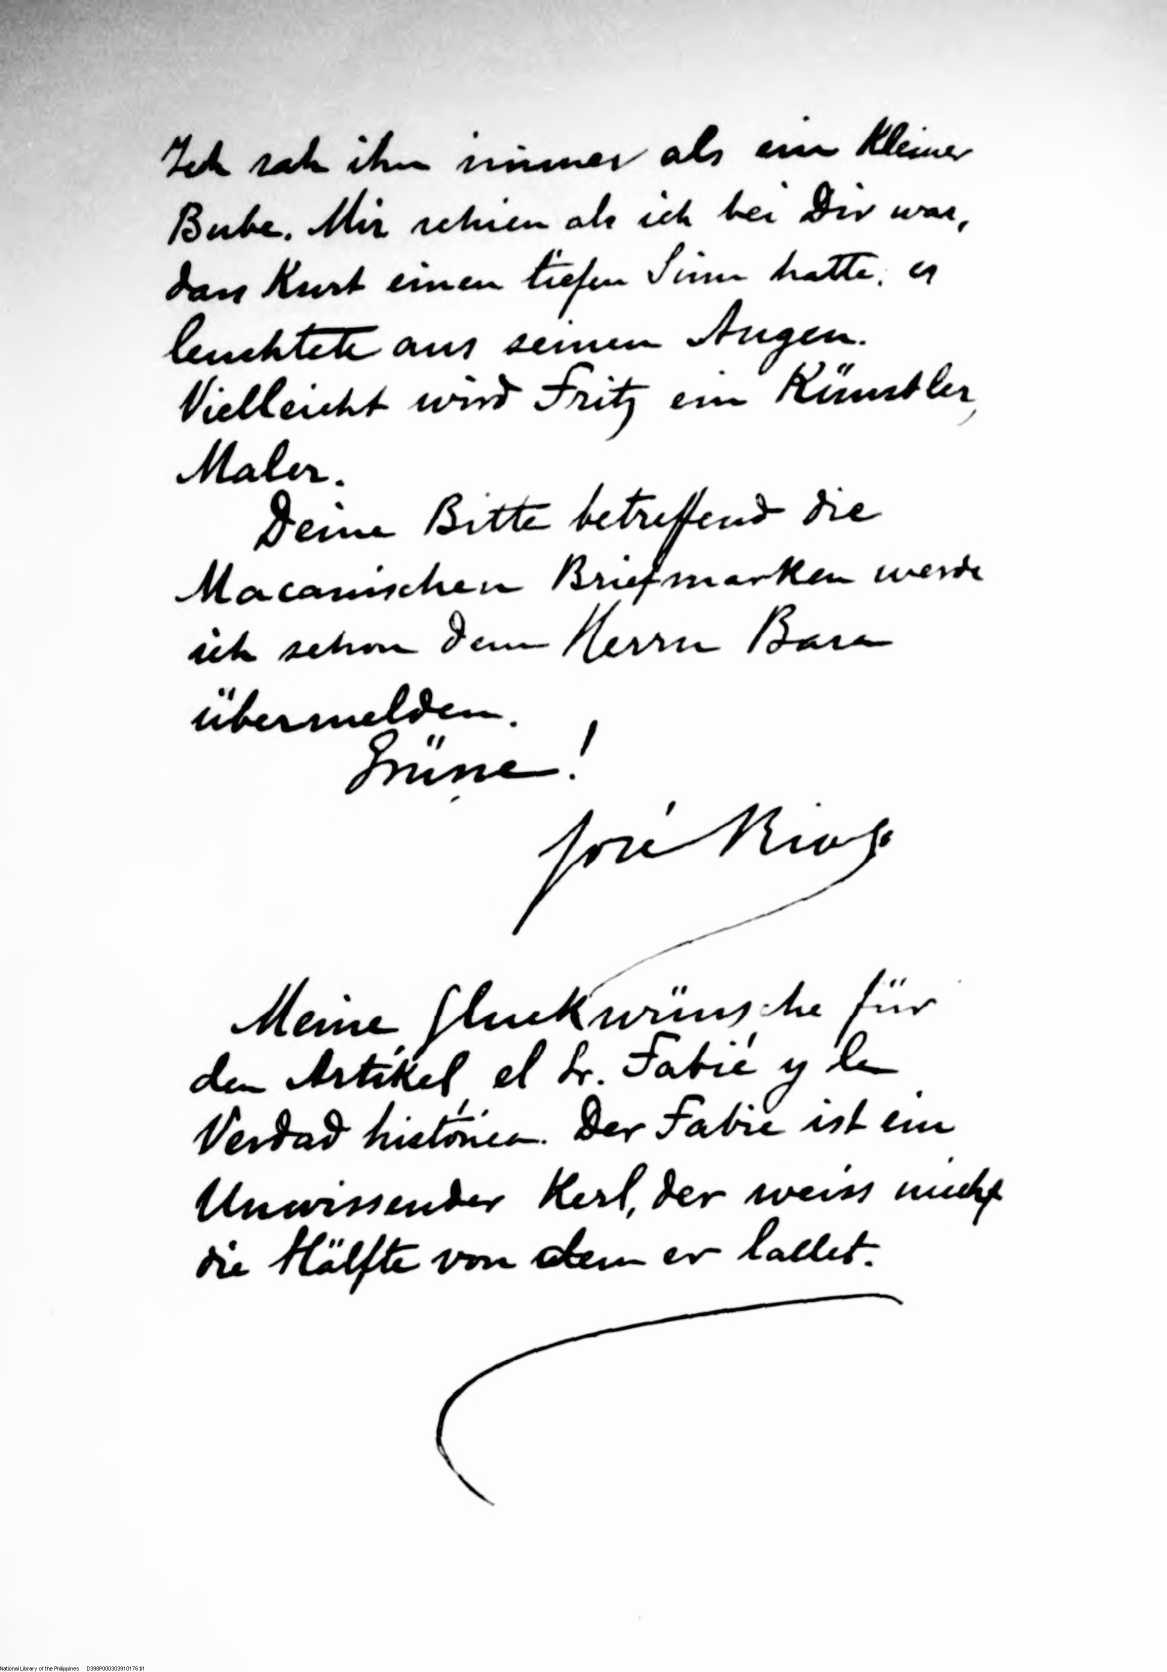 Ich sah ihn immer als ein Kleiner
Bube. Mir schien als ich bei Dir war,
dass Kurt einen tiefen Sinn hatte; es
leuchtete aus seinen Augen.
Vielleicht wird Fritz ein Künstler,
Maler.
Deine Bitte betreffend die
Macanischen Briefmarken werde
ich schon dem Herrn Basa
übermelden.
Grüsse!
José Rizal
Meine Gluckwünsche für
den Artikel, el Sr. Fabié y la
Verdad histórica. Der Fabié ist ein
Unwissender Kerl, der weiss nicht
die Hälfte von dem er lallet.
National Library of the Philippines